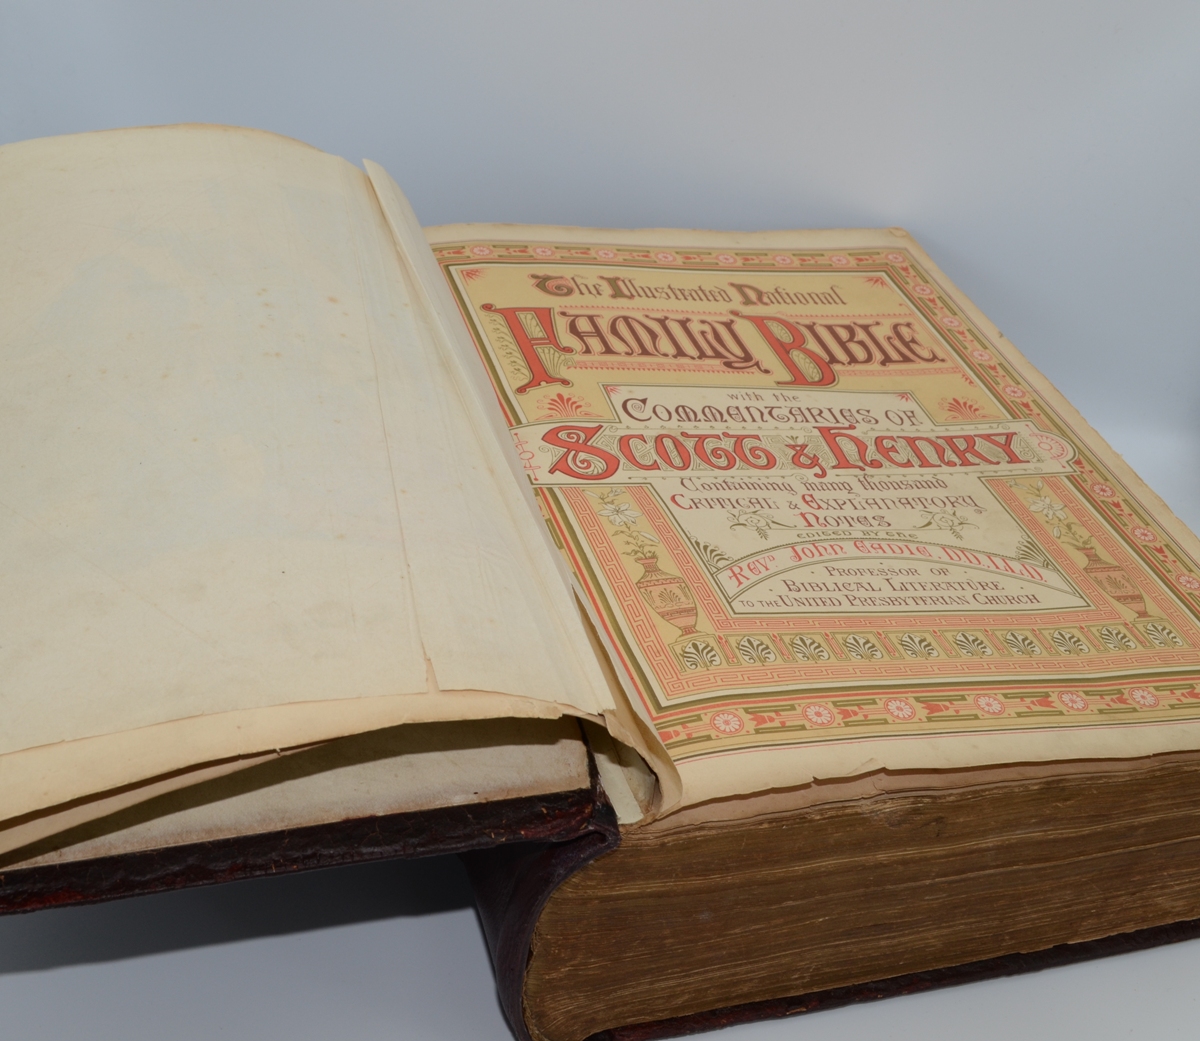 The Illustrated National
FAMILY BIBLE
with the
COMMENTARIES OF
SCOTT & HENRY
Containing many thousand
CRITICAL & EXPLANATORY
NOTES
EDITED BY THE
REVD. JOHN EADIE, D.D., LL.D.
PROFESSOR OF
BIBLICAL LITERATURE
TO THE UNITED PRESBYTERIAN CHURCH